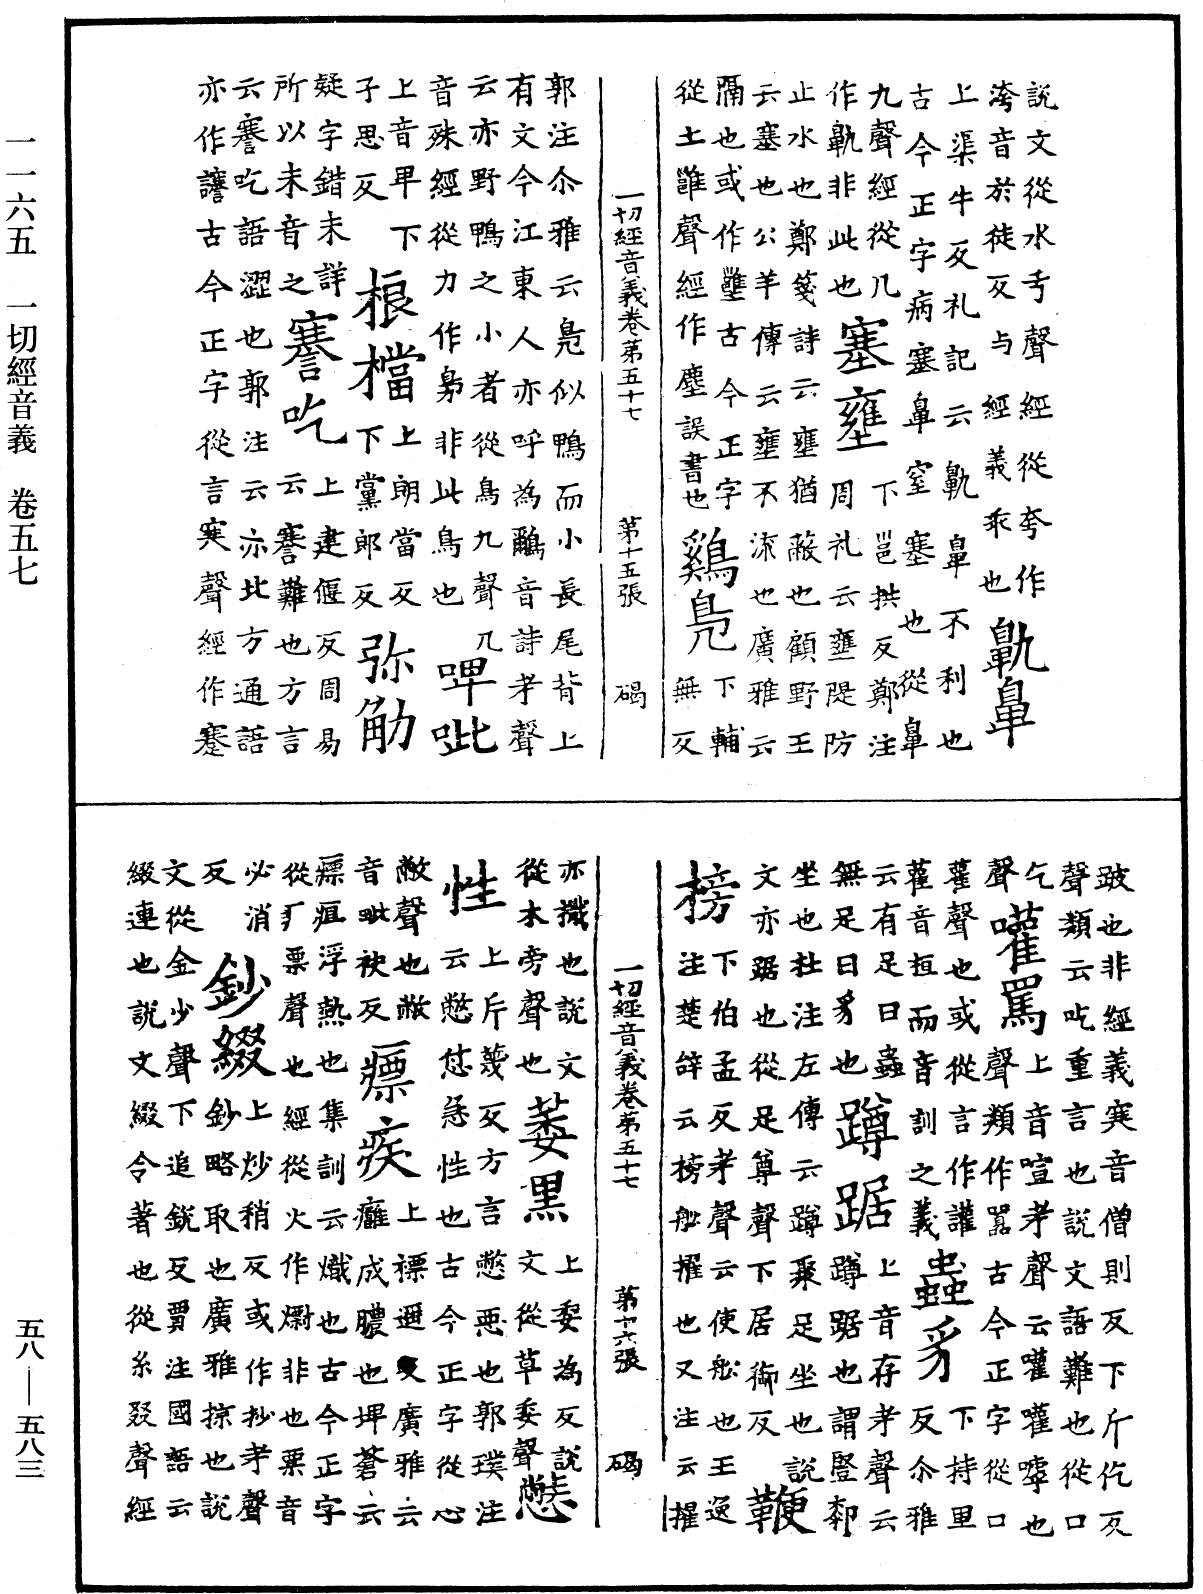 說文從水夸聲經從夸作
洿音於徒反与經義乖也 鼽鼻
上渠牛反礼記云鼽鼻不利也
古今正字病塞鼻窒塞也從鼻
九聲經從几
作鼽非此也 塞壅 下邕拱反鄭注
周礼云壅隄防
止水也鄭箋詩云壅猶蔽也顧野王
云塞也公羊傳云壅不流也廣雅云
隔也或作壅古今正字
從土雝聲經作塵誤書也 鷄鳧 下輔
無反
一切經音義卷第五十七 第十五張 碣
郭注尒雅云鳧似鴨而小長尾背上
有文今江東人亦呼為鸍音詩孝聲
云亦野鴨之小者從鳥九聲几
音殊經從力作鳧非此鳥也 啤呲
上音卑下
子思反 桹檔 上朗當反
下黨郎反 弥勀
疑字錯未詳
所以未音之 謇吃 上建偃反周易
云謇難也方言
云謇吃語澀也郭注云亦北方通語
亦作讓古今正字從言寒聲經作蹇
跛也非經義寒音僧則反下斤仡反
聲類云吃重言也說文語難也從口
乞聲 嚾罵 上音喧孝聲云嚾嚾呼也
聲類作嚻古今正字從口
雚聲也或從言作讙
雚音桓而音訓之義 蟲豸 下持里
反尒雅
云有足曰蟲
無足曰豸也 蹲踞 上音存孝聲云
蹲踞也謂豎䣛
坐也杜注左傳云蹲聚足坐也說
文亦踞也從足尊聲下居御反 鞭
榜 下伯孟反孝聲云使舩也王逸
注楚辝云榜舩擢也又注云擢
一切經音義卷第五十七 第十六張 碣
亦檝也說文
從木旁聲也 萎黑 上委為反說
文從草委聲 憋
性 上斤蔑反方言憋惡也郭璞注
云憋怤急性也古今正字從心
敝聲也敝
音毗袂反 瘭疾 上褾遥反廣雅云
癰成膿也埤蒼云
瘭疽浮熱也集訓云熾也古今正字
從疒票聲也經從火作熛非也票音
必消
反 鈔綴 上炒稍反或作抄孝聲
鈔略取也廣雅掠也說
文從金少聲下追銳反賈注國語云
綴連也說文綴令著也從糸叕聲經
一一六五 一切經音義 卷五七
五八——五八三